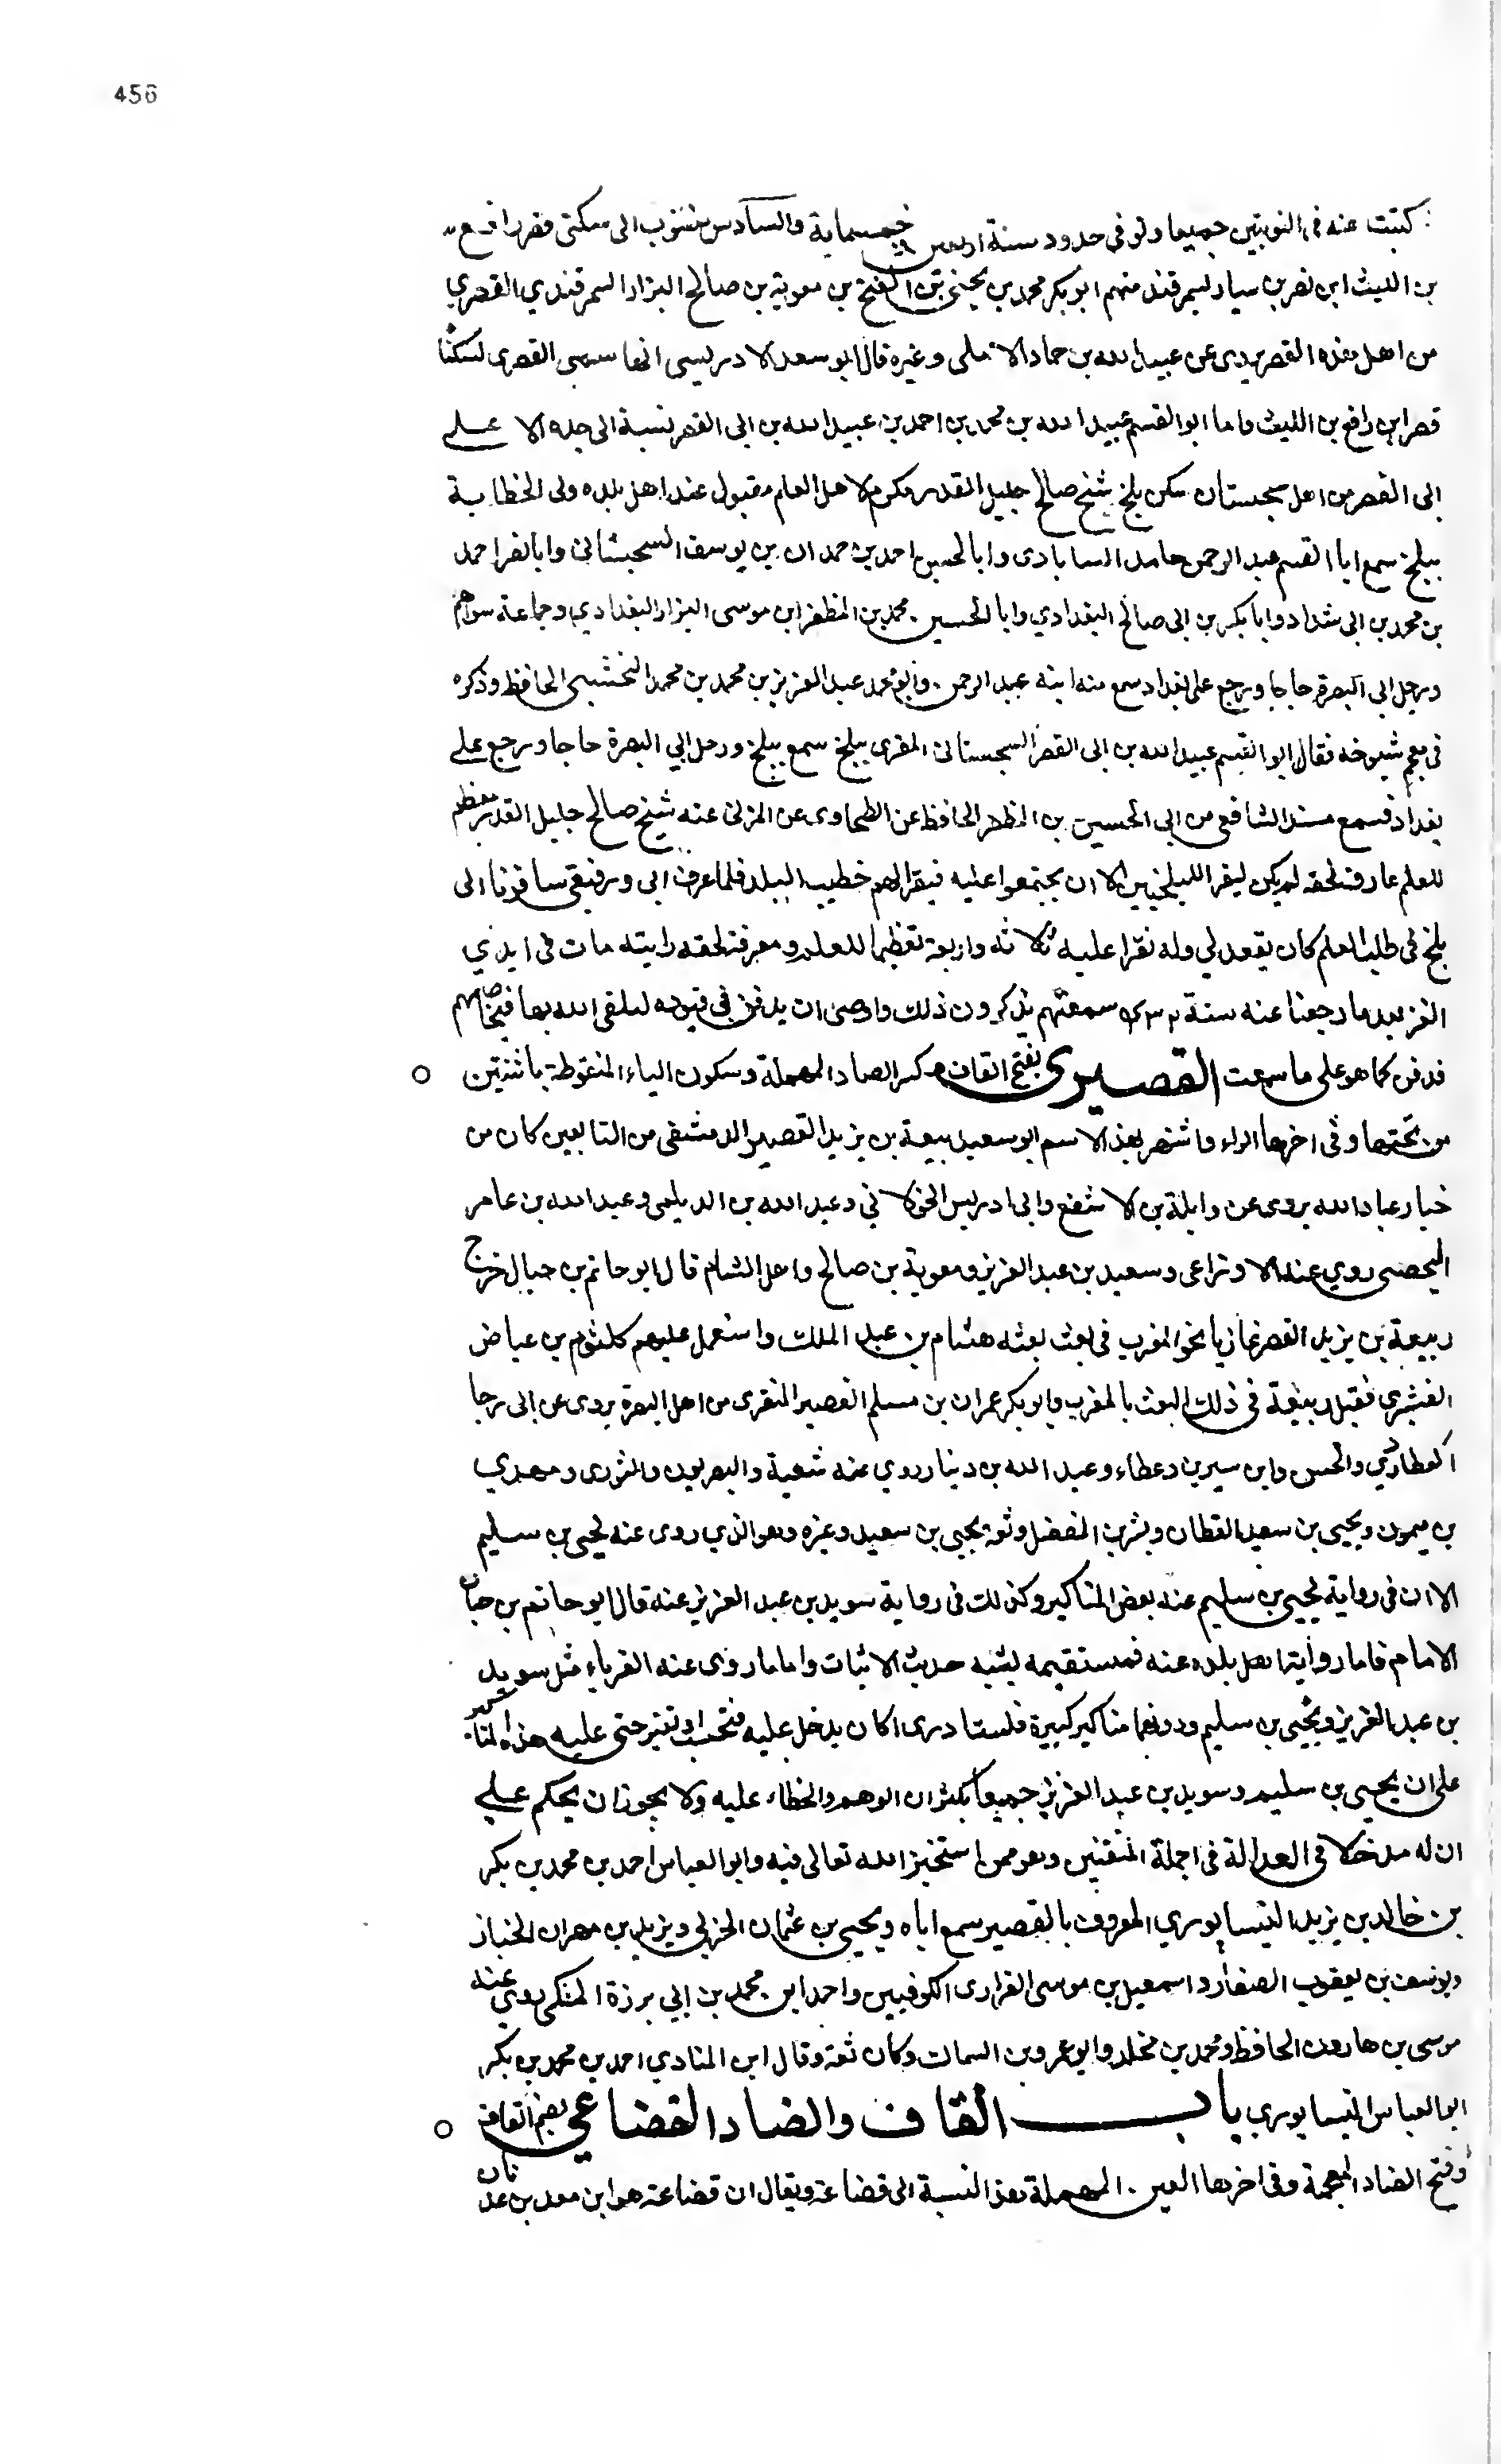 456
كتبت عنه فى النوبتين جميعا وتوفي حدود سنة اربعين وخمسماية والسادس منسوب الى سكنى قصر رافع
بن الليث ابن نصر بن سيار لسمرقند منهم ابو بكر محمد بن يحيى بن الفتح بن معوية بن صالح البزار السمرقندي القصري
من اهل هذه القصر يروى عن عبيد الله بن حماد الاملى وغيره قال ابو سعد الادريسى انما سمى القصرى لسكناه
قصر ابن رافع بن الليث واما ابو القسم عبيد الله بن محمد بن احمد بن عبيد الله بن ابى القصر نسبة الى جده الاعلى
ابى القصر من اهل سجستان سكن بلخ شيخ صالح جليل القدر مكرم لاهل العلم مقبول عند اهل بلده ولى الخطابة
ببلخ سمع ابا القسم عبد الرحمن حامد السابادى وابا الحسين احمد بن حمدان بن يوسف السجستانى وابا نصر احمد
بن محمد بن ابى شداد وابا بكر بن ابى صالح البغدادي وابا الحسين محمد بن المظفر ابن موسى البزار البغدادي وجماعة سواهم
ورحل الى البصرة حاجا ورجع على بغداد سمع منه ابنه عبد الرحمن وابو محمد عبد العزيز بن محمد بن محمد النخشبى الحافظ وذكره
فى معجم شيوخه فقال ابو القسم عبيد الله بن ابى القصر السجستانى المقرى ببلخ سمع ببلخ ورحل الى البصرة حاجا ورجع على
بغداد فسمع مسند الشافعى من ابى الحسين بن المظفر الحافظ عن الطحاوى عن المزنى عنه شيخ صالح جليل القدر معظم
للعلم عارف لحقه لم يكن ليقرا للبلخيين الا ان يجتمعوا عليه فيقرا لهم خطيب البلد فلما عرف ابى ورفيقى سافرنا الى
بلخ فى طلب العلم كان يقعد لي وله نقرا عليه ثلاثه واربعة تعظيما للعلم ومعرفة لحقه رايته مات فى ايدي
الغز بعد ما رجعنا عنه سنة سمعتهم يذكرون ذلك واوصى ان يدفن فى قيوده ليلقى الله بها فيخاصمهم
فدفن كما هو على ما سمعت القصيرى بفتح القاف وكسر الصاد المهملة وسكون الياء المنقوطة باثنتين
من تحتها وفى اخرها الراء واشتهر بهذ الاسم ابو سعيد ربيعة بن يزيد القصير الدمشقى من التابعين كان من
خيار عباد الله يروى عن وايلة بن الاسقع وابى ادريس الخولانى وعبد الله بن الديلمى وعبد الله بن عامر
اليحصبى روي عنه الاوزاعى وسعيد بن عبد العزيز ومعوية بن صالح واهل الشام قال ابو حاتم بن حبان خرج
ربيعة بن يزيد القصر غازيا نحو المغرب فى بعث بعثه هشام بن عبد الملك واستعمل عليهم كلثوم بن عياض
القشيرى فقتل ربيعة فى ذلك البعث بالمغرب وابو بكر عمران بن مسلم القصير المنقرى من اهل البصرة يروى عن ابى رجا
العطاردي والحسن وابن سيرين وعطاء وعبد الله بن دينار روي عنه شعبة والبصريون والثورى ومهدي
بن ميمون ويحيى بن سعيد القطان وبشر بن المفضل وثقه يحيى بن سعيد وغيره وهو الذي روى عنه يحيى بن سليم
الا ان فى رواية يحيى بن سليم عنه بعض المناكير وكذلك فى رواية سويد بن عبد العزيز عنه قال ابو حاتم بن حبان
الامام فاما رواية اهل بلده عنه فمستقيمه يشبه حديث الاثبات واما ما روى عنه الغرباء مثل سويد
بن عبد العزيز ويحيى بن سليم ودونهما مناكير كبيرة فلست ادرى اكان يدخل عليه فتجيب ام تغير حتى عليه هذه المناكير
على ان يحيى بن سليم وسويد بن عبد العزيز جميعا يكثران الوهم والخطاء عليه ولا يجوز ان يحكم على
ان له مدخلا فى العدالة فى اجملة المتقنين وهو ممن استخير الله تعالى فيه وابو العباس احمد بن محمد بن بكر
بن خالد بن يزيد النيسابوري المعروف بالقصير سمع اباه ويحيى بن عثمان الحربي ويزيد بن مهران الخباز
ويوسف بن يعقوب الصفار واسمعيل بن موسى الفزارى الكوفيين واحمد ابن محمد بن ابي برزة المكى روى عنه
موسى بن هارون الحافظ ومحمد بن مخلد وابو عمرو بن السماك وكان ثقة وقال ابن المنادي احمد بن محمد بن بكر
ابو العباس النيسابورى باب القاف والضاد القضاعي بضم القاف
وفتح الضاد المعجمة وفى اخرها العين المهملة هذ النسبة الى قضاعة ويقال ان قضاعة هو ابن معد بن عدنان